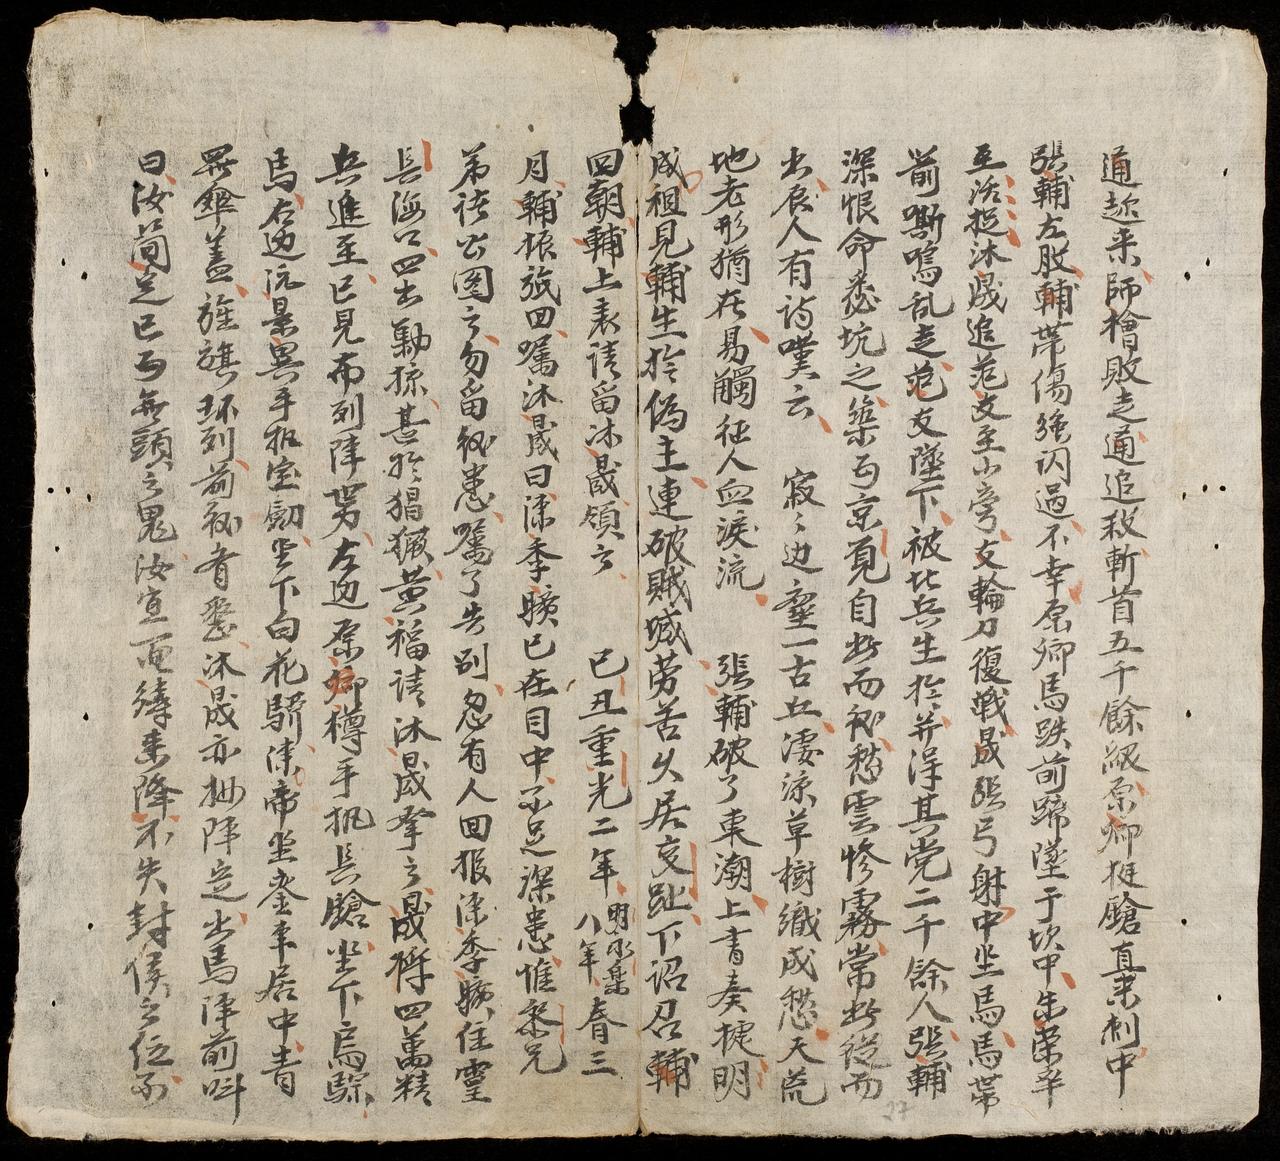 通趂来師檜敗走通追殺斬首五千餘級原卿挺鎗直来刺中
張輔左股輔帶傷強闪過不幸原卿馬跌前蹄墜于坎中朱栄幸
至活捉沐晟追范支至山旁支輪刀復戦晟張弓射中坐馬馬帶
箭嘶鳴乱走范支墜下被北兵生扵并淂其党二千餘人張輔
深恨命丞坑之築为京覌自此而初愁雲慘霧常此從而
出辰人有詩嘆云　寂〻边塵一古丘凄凉草樹織成愁天荒
地老形猶在易觸征人血淚流　張輔破了東潮上書奏捷明
成祖見輔生扵偽主連破賊城劳苦久居交趾下詔召輔
囬朝輔上表請留沐晟領之　已丑重光二年明永楽八年春三
月輔振旅囬嘱沐晟曰陳季擴已在目中不足深患惟黎兄
弟語公圖之勿留後患嘱了告别忽有人回报陳季擴住靈
長海口四出勦掠甚扵猖獗黄福請沐晟拏之晟將四萬精
兵進至已見布列陣势左边原卿樽手执長鎗坐下烏騅
馬右边阮景異手扣宝劎坐下白花驕陳帝坐鑾車居中青
罪傘盖旌旗环列前後者悉沐晟亦抽陣定出馬陣前叫
曰汝簡定已为無頭之鬼汝宜面縳来降不失封侯之位不